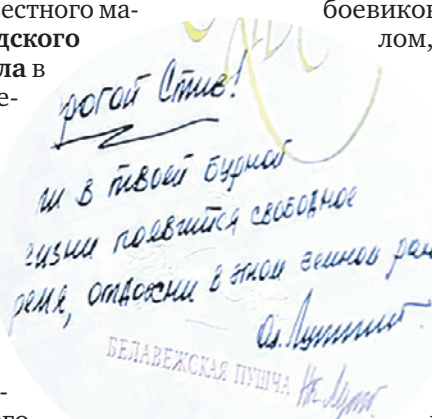 вестного ма-
дского
ла в
е-
боевиков
лом,
рогой Стив!
ли в твоей бурной
изни появится свободное
ремя, отдохни в этом земном раю
БЕЛАВЕЖСКАЯ ПУШЧА
-